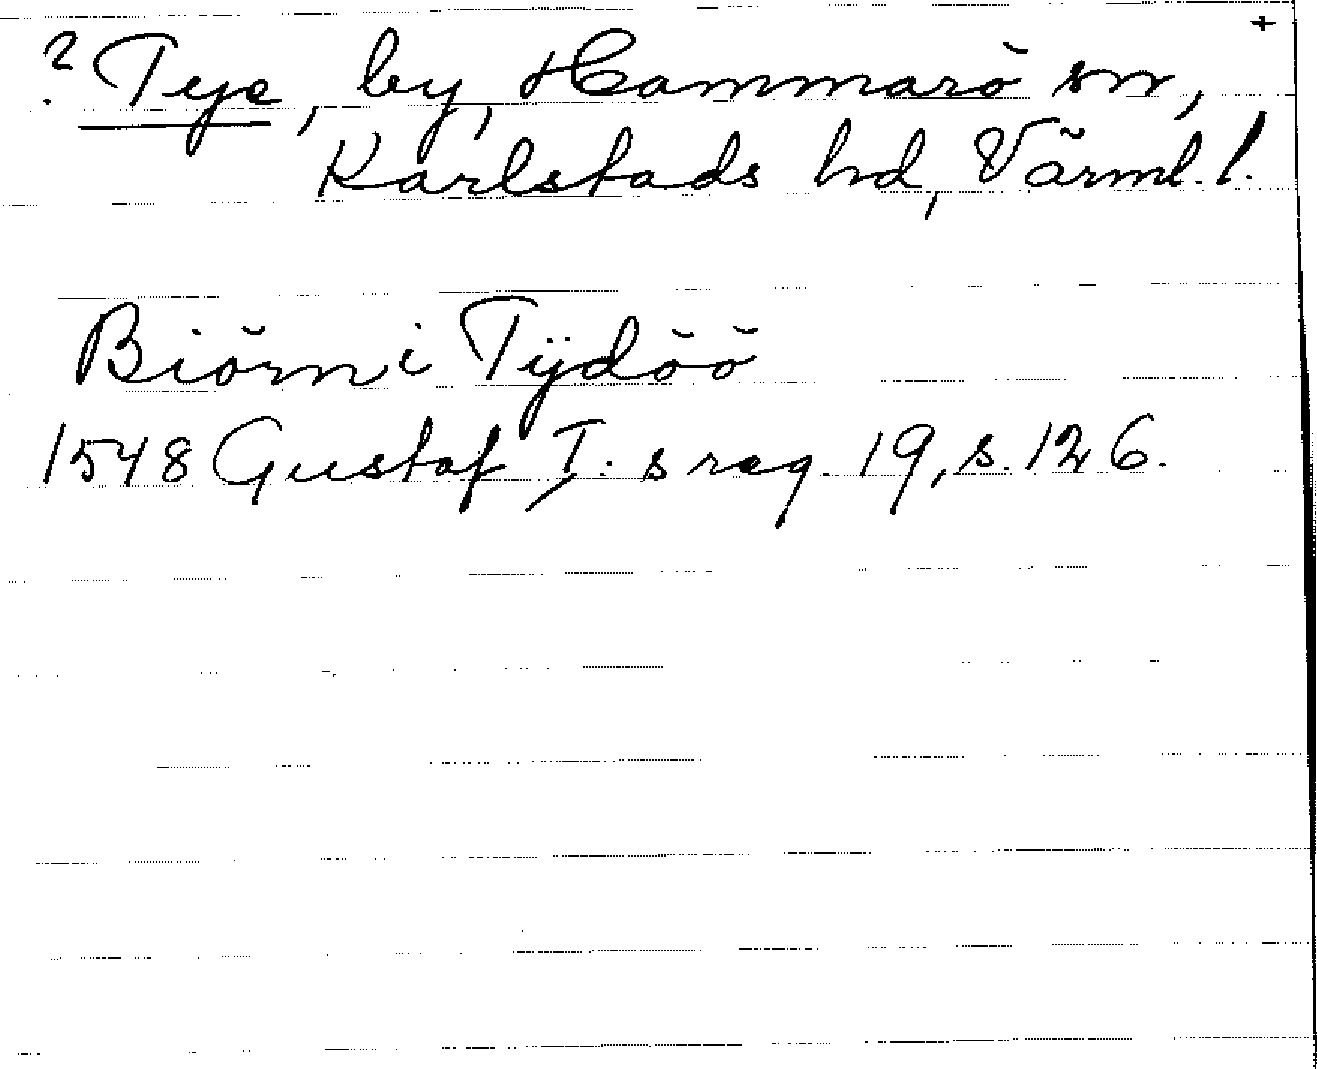 +
? Tye, by, Hammarö sn,
Karlstads hd, Värml. l.
Biörn i Tÿdöö
1548 Gustaf I:s reg. 19, s. 126.